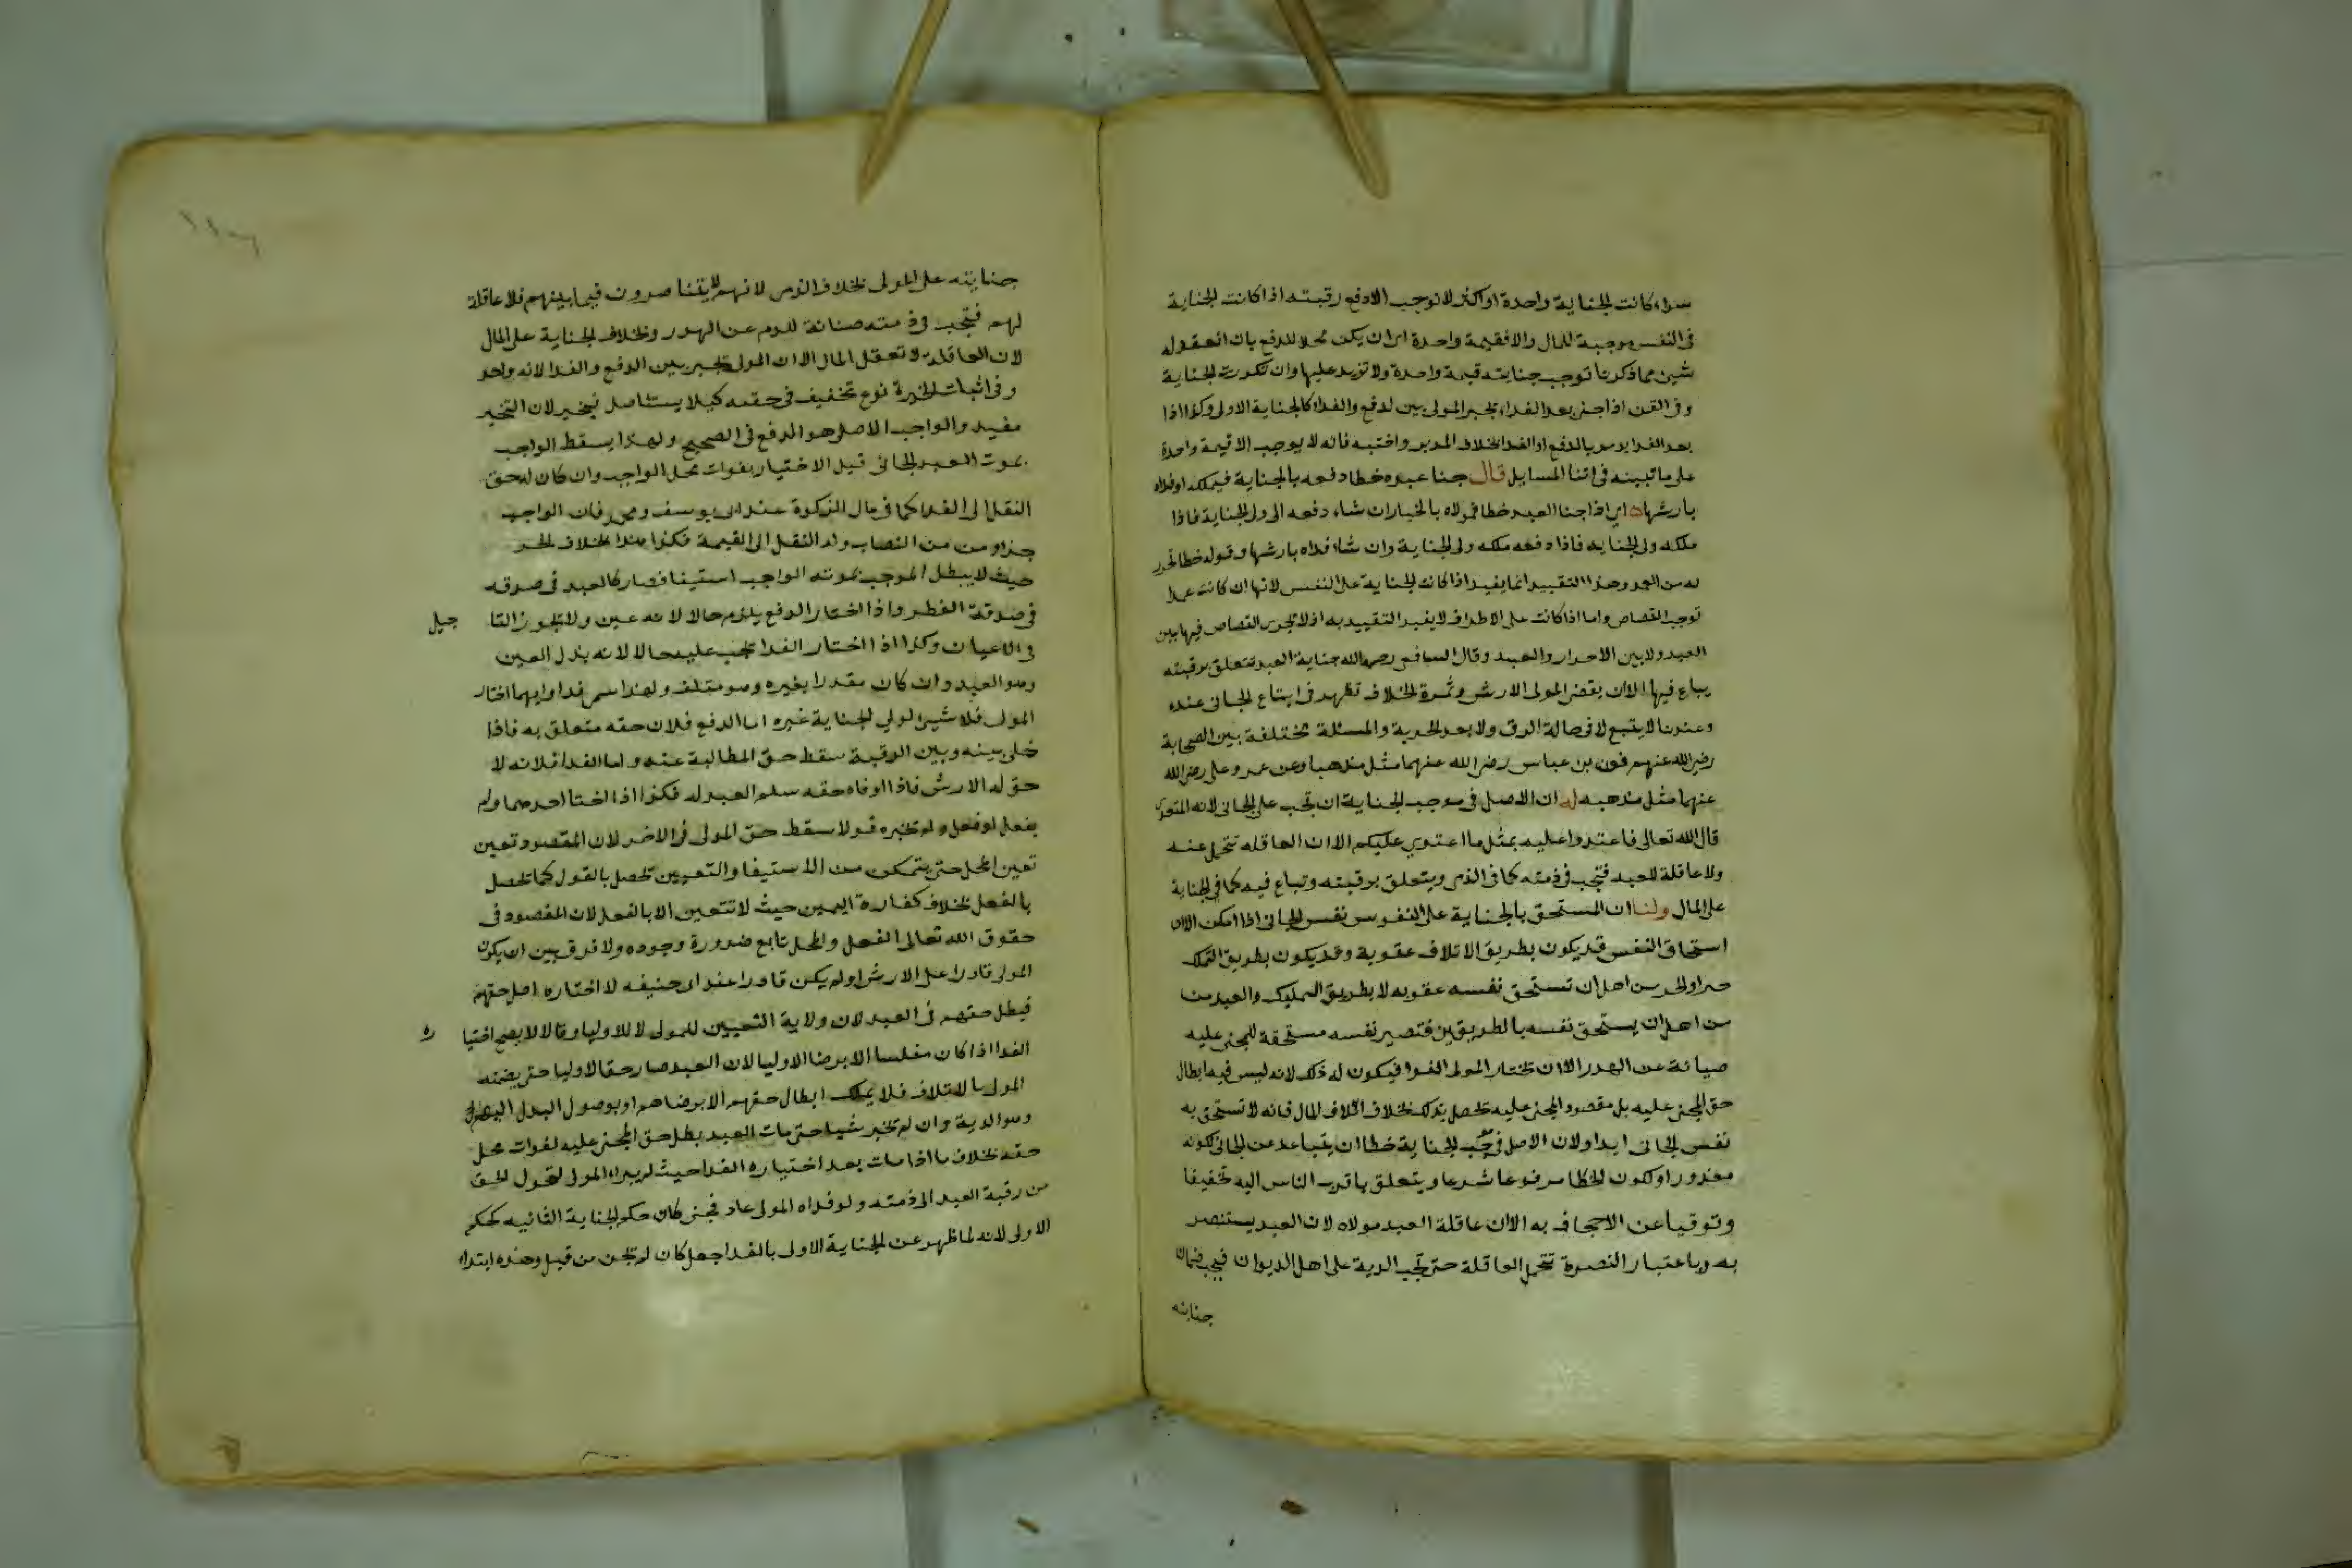 سواء كانت الجناية واحدة او اكثر لا توجب الا دفع رقبته اذا كانت الجناية
فى النفس موجبة للمال والا فقيمة واحدة اى ان يكن محلا للدفع بان انعقد له
شيئ مما ذكرنا توجب جنايته قيمة واحدة ولا تزيد عليها وان تكررت الجناية
وفى القن اذا جنى بعد الفداء يخير المولى بين لدفع والفداء كالجناية الاولى وكذا اذا
بعد الفدا يومر بالدفع او الفدا بخلاف المدبر واختيه فانه لا يوجب الا قيمة واحدة
على ما تبينه فى اثنا المسايل قال جنا عبده خطا دفعه بالجناية فيملكه او فداه
بارشها اى اذا جنا العبد خطا فمولاه بالخيار ان شاء دفعه الى ولى الجناية فاذا
ملكه ولى الجنايه فاذا دفعه ملكه ولى الجناية وان شاء فداه بارشها وقوله خطا تحرز
له من العمد وهذا التقييد انما يفيد اذا كانت الجناية على النفس لانها ان كانت عمدا
توجب القصاص واما اذا كانت على الاطراف لا يفيد التقييد به اذ لا تجرى القصاص فيها بين
العبيد ولا بين الاحرار والعبيد وقال الشافعى رحمه الله جناية العبد تتعلق برقبته
يباع فيها الا ان يقضى المولى الارش وثمرة الخلاف تظهر فى ابتاع الجانى عنده
وعندنا لا يتبع لا فى حالة الرق ولا بعد الحرية والمسئلة مختلفة بين الصحابة
رضى الله عنهم فعن بن عباس رضى الله عنهما مثل مذهبنا وعن عمر وعلى رضى الله
عنهما مثل مذهبه له ان الاصل فى موجب الجناية ان تجب على الجانى لانه المتعدى
قال الله تعالى فاعتدوا عليه بمثل ما اعتدى عليكم الا ان العاقله تتحمل عنه
ولا عاقلة للعبد فتجب فى ذمته كما فى الذمى ويتعلق برقبته وتباع فيه كما فى الجناية
على المال ولنا ان المستحق بالجناية على النفوس نفس الجانى اذا امكن الا ان
استحقاق النفس قد يكون بطريق الاتلاف عقوبة وقد يكون بطريق التملك
حرا والحر من اهل ان تستحق نفسه عقوبه لا بطريق التمليك والعبد من
من اهل ان يستحق نفسه بالطريقين فتصير نفسه مستحقة للمجنى عليه
صيانة عن الهدر الا ان تختار المولى الفدا فيكون له ذلك لانه ليس فيه ابطال
حق المجنى عليه بل مقصود المجنى عليه تحصل بذلك بخلاف اتلاف المال فانه لا تستحق به
نفس الجانى ابدا ولان الاصل فى موجب الجناية خطا ان يتباعد عن الجانى لكونه
معذورا ولكون الخطا مرفوعا شرعا ويتعلق باقرب الناس اليه تخفيفا
وتوقيا عن الاجحاف به الا ان عاقلة العبد مولاه لان العبد يستنصر
به وباعتبار النصرة تتحمل العاقلة حتى تجب الدية على اهل الديوان فيجب ضمان
جنايته
جنايته على المولى بخلاف الذمى لانهم لا يتناصرون فيما بينهم فلا عاقلة
لهم فتجب فى ذمته صيانة للدم عن الهدر وبخلاف الجناية على المال
لان العاقلة لا تعقل المال الا ان المولى يخير بين الدفع والفدا لانه واحد
وفى اثبات الخيرة نوع تخفيف فى حقه كيلا يستاصل فيخير لان التخيير
مفيد والواجب الاصلى هو الدفع فى الصحيح ولهذا يسقط الواجب
بموت العبد الجانى قبل الاختيار بفوات محل الواجب وان كان له حق
النقل الى الفدا كما فى مال الزكوة عند ابى يوسف ومحمد فان الواجب
جزاو من من النصاب وله النقل الى القيمة فكذا هذا بخلاف الحر
حيث لا يبطل الموجب بموته الواجب استيفا فصار كالعبد فى صدقه
فى صدقة الفطر واذا اختار الدفع يلزم حالا لانه عين ولا يجوز التا جيل
فى الاعيان وكذا اذا اختار الفدا تجب عليه حالا لانه بدل العين
وهو العبد وان كان مقدرا بغيره وهو متلف ولهذا سمى فدا وايهما اختار
المولى فلا شيئ لولى الجناية غيره اما الدفع فلان حقه متعلق به فاذا
خلى بينه وبين الرقبة سقط حق المطالبة عنه واما الفدا فلانه لا
حق له الا الارش فاذا اوفاه حقه سلم العبد له فكذا اذا اختا احدهما ولم
يفعل او فعل ولم تخيره قولا سقط حق المولى فى الاخر لان المقصود تعين
تعين المحل حتى يتمكن من الاستيفا والتعيين تحصل بالقول كما تحصل
بالفعل بخلاف كفارة اليمين حيث لا تتعين الا بالفعل لان المقصود فى
حقوق الله تعالى الفعل والمحل تابع ضرورة وجوده ولا فرق بين ان يكون
المولى قادرا على الارش او لم يكن قادرا عند ابى حنيفه لا اختاره اصل حقهم
فبطل حقهم فى العبد لان ولاية التعيين للمولى لا للاوليا وقالا لا يصح اختيا ره
الفدا اذا كان مفلسا الا برضا الاوليا لان العبد صار حقا لاوليا حتى يضمنه
المولى بالاتلاف فلا يملك ابطال حقهم الا برضاهم او بوصول البدل اليهم
وهو الدية وان لم تخير شيا حتى مات العبد بطل حق المجنى عليه لفوات محل
حقه بخلاف ما اذا مات بعد اختياره الفدا حيث لم يبراء المولى لتحول الحق
من رقبة العبد الى ذمته ولو فداه المولى عاد فجنى كان حكم الجناية الثانيه كحكم
الاولى لانه لما ظهر عن الجناية الاولى بالفدا جعل كان لم تكن من قبل وهذه ابتداء